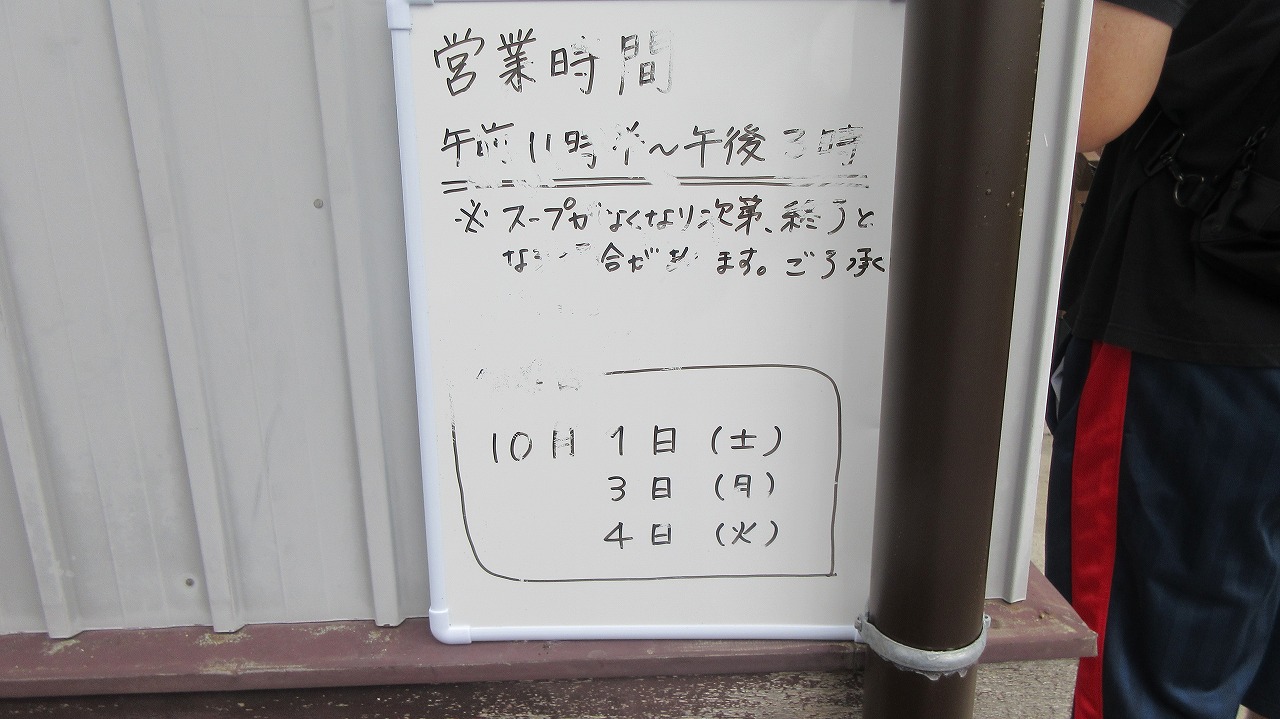 営業時間
午前11時半～午後3時
※スープがなくなり次第、終了と
なる場合があります。ご了承
10月1日(土)
3日(月)
4日(火)